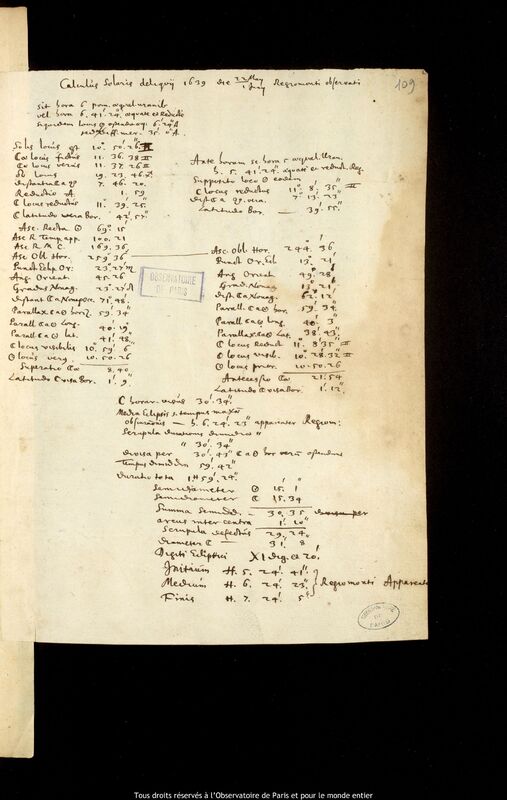 109
Calculus Solaris deliquij 1639 die 22 May / 1 Juny Regiomonti observati
Sit hora 6 pom. æqual uranib.
vel hora 6. 41. 24. æquate et Reducte
Solis locus 10. 50. 26 II
C a locus fictus 11. 36. 38 II
C a locus verus 11. 37. 26 II
locus 19. 23. 46
distantia C a 7. 46. 20.
Reductio A. 1. 59
C locus reductus 11. 39. 25.
C latitudo vera Bor. 42. 57"
Asc. Recta ☉ 69. 15
Asc R Temp. app. 100. 21
Asc R M C. 169. 36
Asc Obl. Hor. 259. 36
Punct. Eclip. Or. 23. 27
Ang. Orient. 45. 26
Gradus Nonag. 23. 27
Distant C a Nonag. 71. 48.
Parallax C a ☉ horiz. 59. 34
Parall C a ☉ Long. 40. 19
Parall C a ☉ lat. 41. 48"
C locus visibilis 10. 59. 6
☉ locus verus 10. 50. 26
Superatio C a 8. 40.
Latitudo C visa Bor. 1. 9"
Ante horam sc. hora 5 æqual. Uran.
h. 5. 41. 24" æquate et reduct. Reg.
Supposito loco ☉ eodem
C locus reductus 11. 8. 35 II
dist C a vera. 7. 13. 23
Latitudo Bor. 39. 55"
Asc. Obl. Hor. 244. 36
Punct. Or. Ecl. 13. 21
Ang Orient. 49. 28
Grad. Nonag. 13. 21
dist. C a Nonag. 62. 12
Parall. C a ☉ hor. 59. 34"
Parall C a ☉ Long. 40. 3"
Parallax. C a ☉ Lat. 38. 43
C locus Reduct. 11. 8. 35 II
C locus visib. 10. 28. 32 II
☉ locus prior. 10. 50. 26
Antecessio C a 21. 54
Latitudo C visa bor. 1. 12"
C horar. visus 30. 34"
Media Eclipsis s. tempus maxæ
obscurationis — h. 6. 24. 23" apparenter Regiom:
Scrupula durationis dimidiæ
30. 34"
divisa per 30. 43" C a ☉ hor verum
Tempus dimidium 59. 42"
duratio tota 1H 59. 24"
Semidiameter ☉ 15. 1
Semidiameter C 15. 34
Summa Semidd. 30. 35
arcus inter centra 1. 10"
Scrupula defectus 29. 24
diameter C 31. 8
Digiti Ecliptici XI dig. et 20'
Initium H. 5. 24. 41"
Medium H. 6. 24. 23" Regiomonti Apparenter
Finis H. 7. 24. 5"
OBSERVATOIRE
DE PARIS
OBSERVATOIRE
DE
PARIS
Tous droits réservés à l'Observatoire de Paris et pour le monde entier